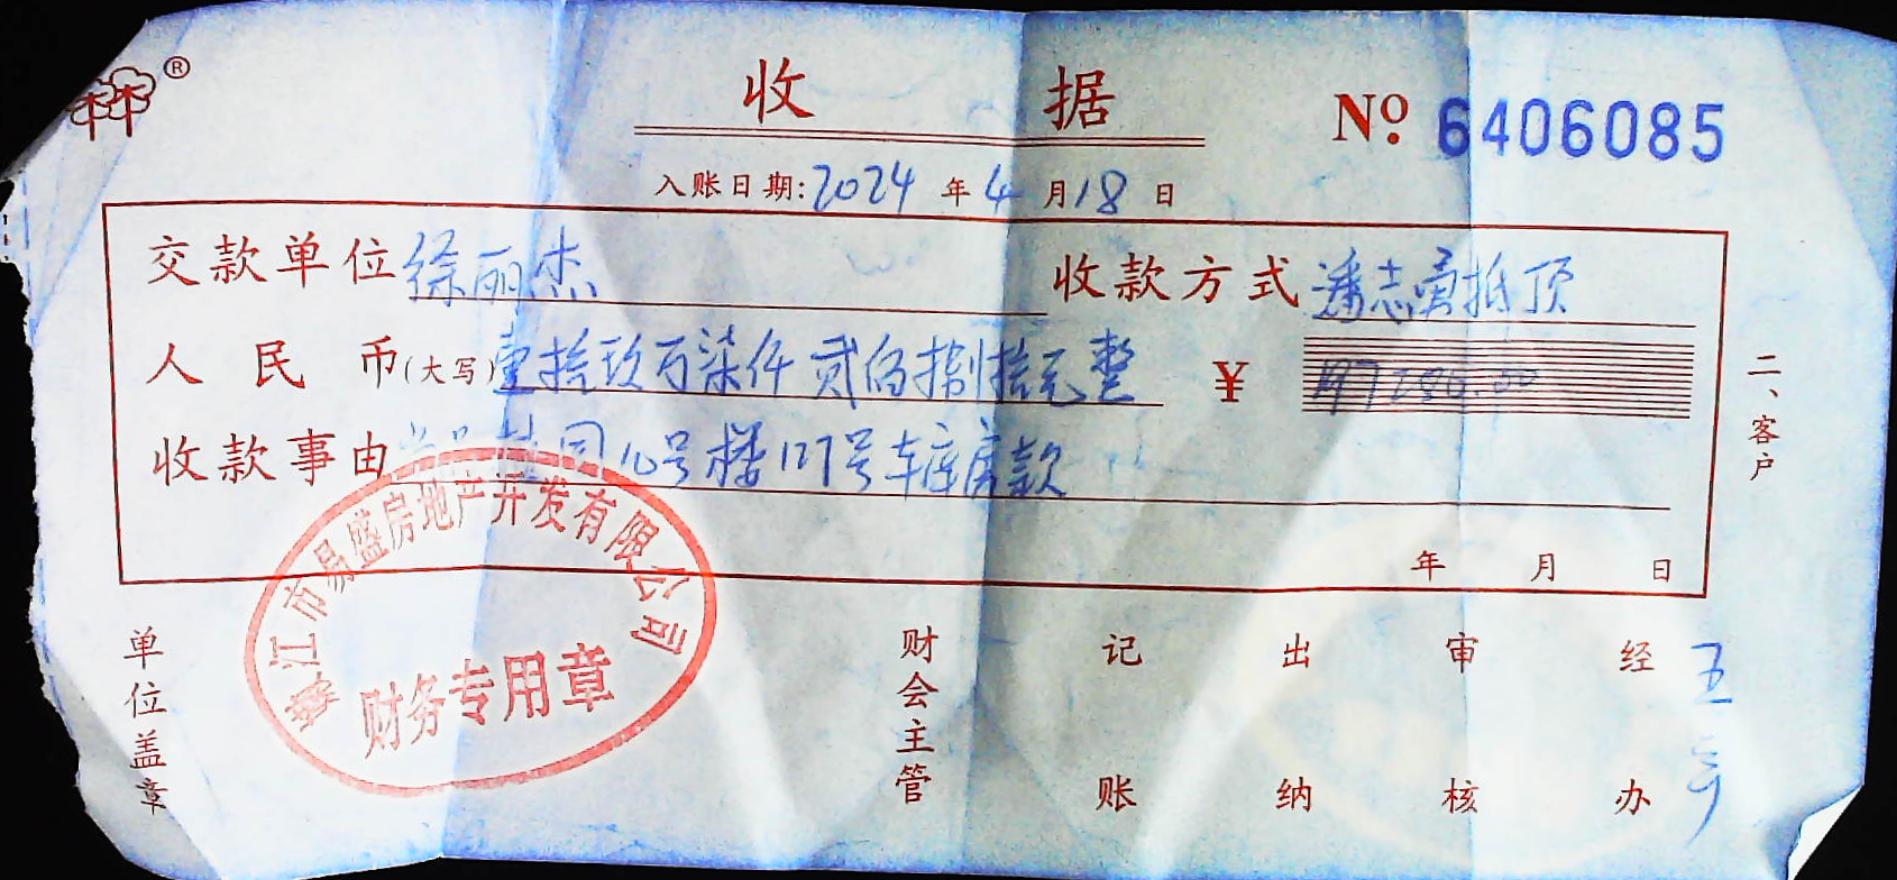 ®
收 据
№ 6406085
入账日期:2024 年 4 月 18 日
交款单位 徐丽杰 收款方式 潘志勇抵顶
人民币(大写) 壹拾玖万柒仟贰佰捌拾元整 ¥ 197280.00
收款事由 10号楼127号车库房款
年 月 日
二、客户
江市易盛房地产开发有限公司
财务专用章
单位盖章 财会主管 记账 出纳 审核 经办